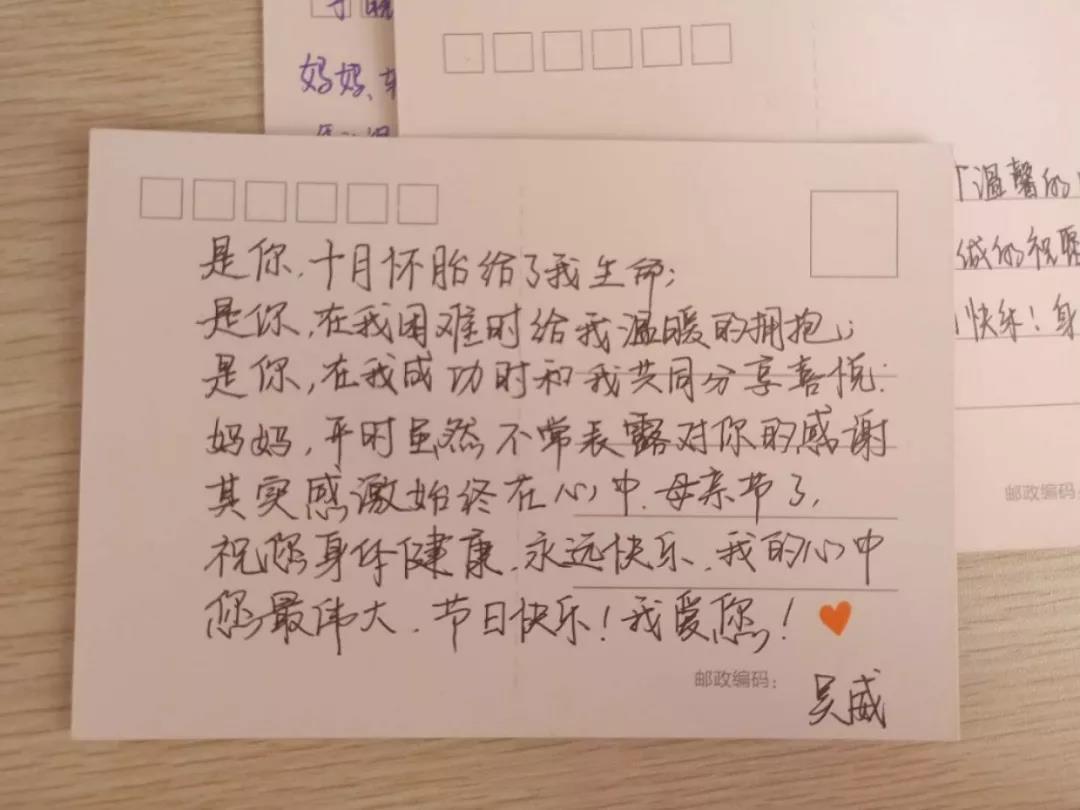 妈妈、
是你,十月怀胎给了我生命;
是你,在我困难时给我温暖的拥抱;
是你,在我成功时和我共同分享喜悦:
妈妈,平时虽然不常表露对你的感谢
其实感激始终在心中.母亲节了,
祝您身体健康.永远快乐.我的心中
您最伟大.节日快乐!我爱您!
邮政编码:
吴威
温馨的
的祝
快乐!身
邮政编码